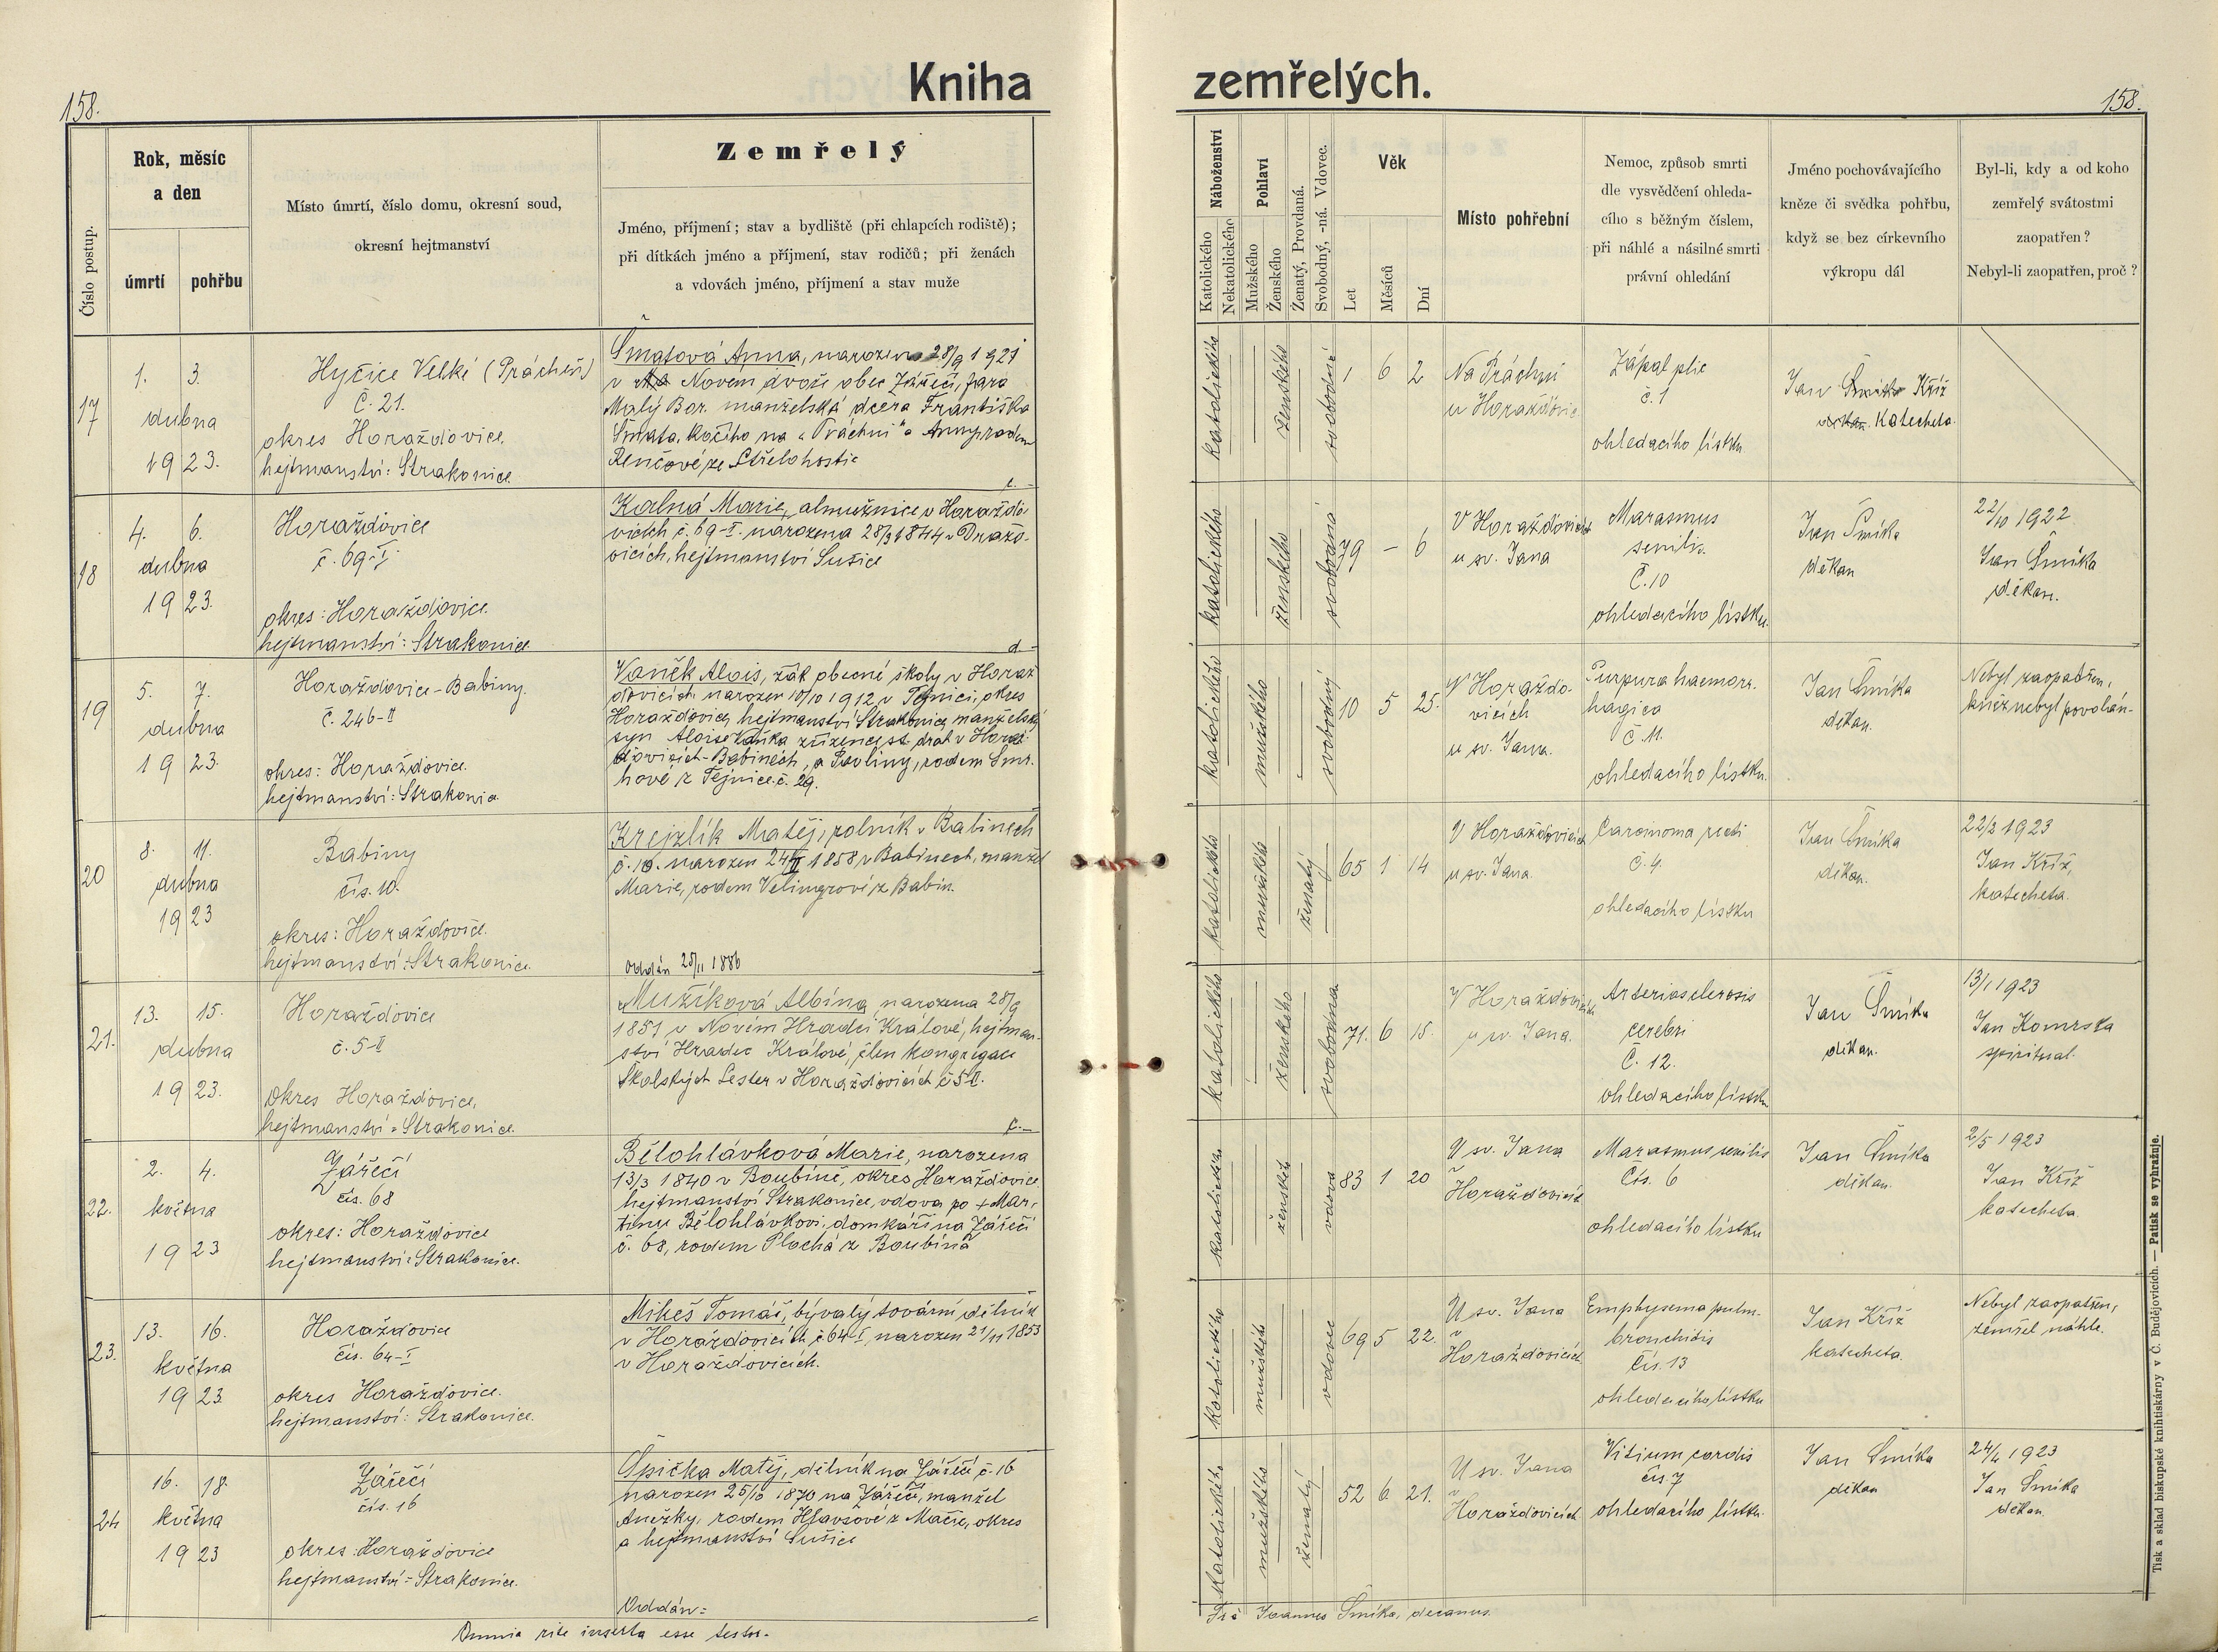 158.
Kniha zemřelých.
158.
Číslo postup.
Rok, měsíc
a den
úmrtí
pohřbu
Místo úmrtí, číslo domu, okresní soud,
okresní hejtmanství
Zemřelý
Jméno, příjmení; stav a bydliště (při chlapcích rodiště);
při dítkách jméno a příjmení, stav rodičů; při ženách
a vdovách jméno, příjmení a stav muže
Náboženství
Katolického
Nekatolického
Pohlaví
Mužského
Ženského
Ženatý, Provdaná.
Svobodný, -ná. Vdovec.
Věk
Let
Měsíců
Dní
Místo pohřební
Nemoc, způsob smrti
dle vysvědčení ohleda-
cího s běžným číslem,
při náhlé a násilné smrti
právní ohledání
Jméno pochovávajícího
kněze či svědka pohřbu,
když se bez církevního
výkropu dál
Byl-li, kdy a od koho
zemřelý svátostmi
zaopatřen?
Nebyl-li zaopatřen, proč?
17
1. 3.
dubna
1923.
Hyčice Velké (Prácheň)
Č. 21.
okres Horažďovice
hejtmanství: Strakonice
Šmatová Anna, narozena 28/9 1921
v Novém dvoře obec Záříčí, fara
Malý Bor. manželská dcera Františka
Šmata, kočího na „Práchni“ a Anny rodem
Renčové ze Střelohostic
katolického
ženského
svobodná
1 6 2
Na Práchni
u Horažďovic
Zápal plic
č. 1
ohledacího lístku
Jan Kříž
Katecheta.
18
4. 6.
dubna
1923.
Horažďovice
č. 69-I
okres: Horažďovice.
hejtmanství: Strakonice
Kalná Marie, almužnice v Horaždo-
vicích č. 69-I. narozena 28/3 1844 v Dražo-
vicích, hejtmanství Sušice
d.
katolického
ženského
svobodná
79 — 6
V Horažďovicích
u sv. Jana
Marasmus
senilis.
Č. 10
ohledacího lístku.
Jan Šmíka
děkan
22/10 1922
Jan Šmíka
děkan.
19
5. 7.
dubna
1923.
Horažďovice-Babiny.
č. 246-II
okres: Horažďovice.
hejtmanství: Strakonice
Vaněk Alois, žák obecné školy v Horaž
ďovicích narozen 10/10 1912 v Týnici, okres
Horažďovice, hejtmanství Strakonice, manželský
syn Aloise Vaňka zřízence st. drah v Horaž
ďovicích-Babinách, a Pavliny, rodem Smr-
hové z Tejnice č. 29.
katolického
mužského
svobodný
10 5 25.
V Horažďo-
vicích
u sv. Jana.
Purpura haemorr-
hagica
č. 11.
ohledacího lístku.
Jan Šmíka
děkan.
Nebyl zaopatřen,
kněz nebyl povolán-
20
8. 11.
dubna
1923
Babiny
čís. 10.
okres: Horažďovice.
hejtmanství: Strakonice.
Krejzlík Matěj, rolník v Babinech
č. 10. narozen 24/II 1858 v Babinech, manžel
Marie, rodem Velingrové z Babin.
Oddán 25/11 1886
katolického
mužského
ženatý
65 1 14
V Horažďovicích
u sv. Jana.
Carcinoma recti
č. 4.
ohledacího lístku
Jan Šmíka
děkan.
22/2 1923
Jan Kříž,
katecheta.
21.
13. 15.
dubna
1923.
Horažďovice
č. 5-II
okres Horažďovice,
hejtmanství: Strakonice.
Mužíková Albína, narozena 28/9
1851 v Novém Hradci Králové, hejtman-
ství Hradec Králové, člen kongregace
Školských Sester v Horažďovicích č 5 II.
katolického
ženského
svobodná
71. 6 15.
V Horažďovicích
u sv. Jana.
Arteriosclerosis
cerebri
Č. 12.
ohledacího lístku
Jan Šmíka
děkan.
13/1 1923
Jan Komrska
spirituál.
22.
2. 4.
května
1923
Záříčí
čís. 68
okres: Horažďovice
hejtmanství: Strakonice.
Bělohlávková Marie, narozena
13/3 1840 v Boubíně, okres Horažďovice,
hejtmanství Strakonice, vdova po + Mar-
tinu Bělohlávkovi, domkáři na Záříčí
č. 68, rodem Plochá z Boubína
katolického
ženského
vdova
83 1 20
U sv. Jana
v
Horažďovicích
Marasmus senilis
Čís. 6
ohledacího lístku
Jan Šmíka
děkan.
2/5 1923
Jan Kříž
katecheta
23.
13. 16.
května
1923
Horažďovice
čís. 64-I
okres Horažďovice.
hejtmanství: Strakonice.
Mikeš Tomáš, bývalý tovární dělník
v Horažďovicích č 64-I, narozen 21/11 1853
v Horažďovicích.
katolického
mužského
vdovec
69 5 22.
U sv. Jana
v
Horažďovicích
Emphysema pulm-
bronchitis
čís. 13
ohledacího lístku
Jan Kříž
katecheta.
Nebyl zaopatřen,
zemřel náhle.
24
16. 18.
května
1923
Záříčí
čís. 16
okres: Horažďovice
hejtmanství: Strakonice.
Špička Matěj, dělník na Záříčí č. 16
narozen 25/10 1870 na Záříčí, manžel
Anežky, rodem Hlavsové z Mačic, okres
a hejtmanství Sušice
Oddán:
katolického
mužského
ženatý
52 6 21.
U sv. Jana
v
Horažďovicích
Vitium cordis
čís. 7
ohledacího lístku.
Jan Šmíka
děkan
24/4 1923
Jan Šmíka
děkan.
Omnia rite inserta esse testor.
Joannes Šmíka, decanus.
Tisk a sklad biskupské knihtiskárny v Č. Budějovicích. — Patisk se vyhražuje.